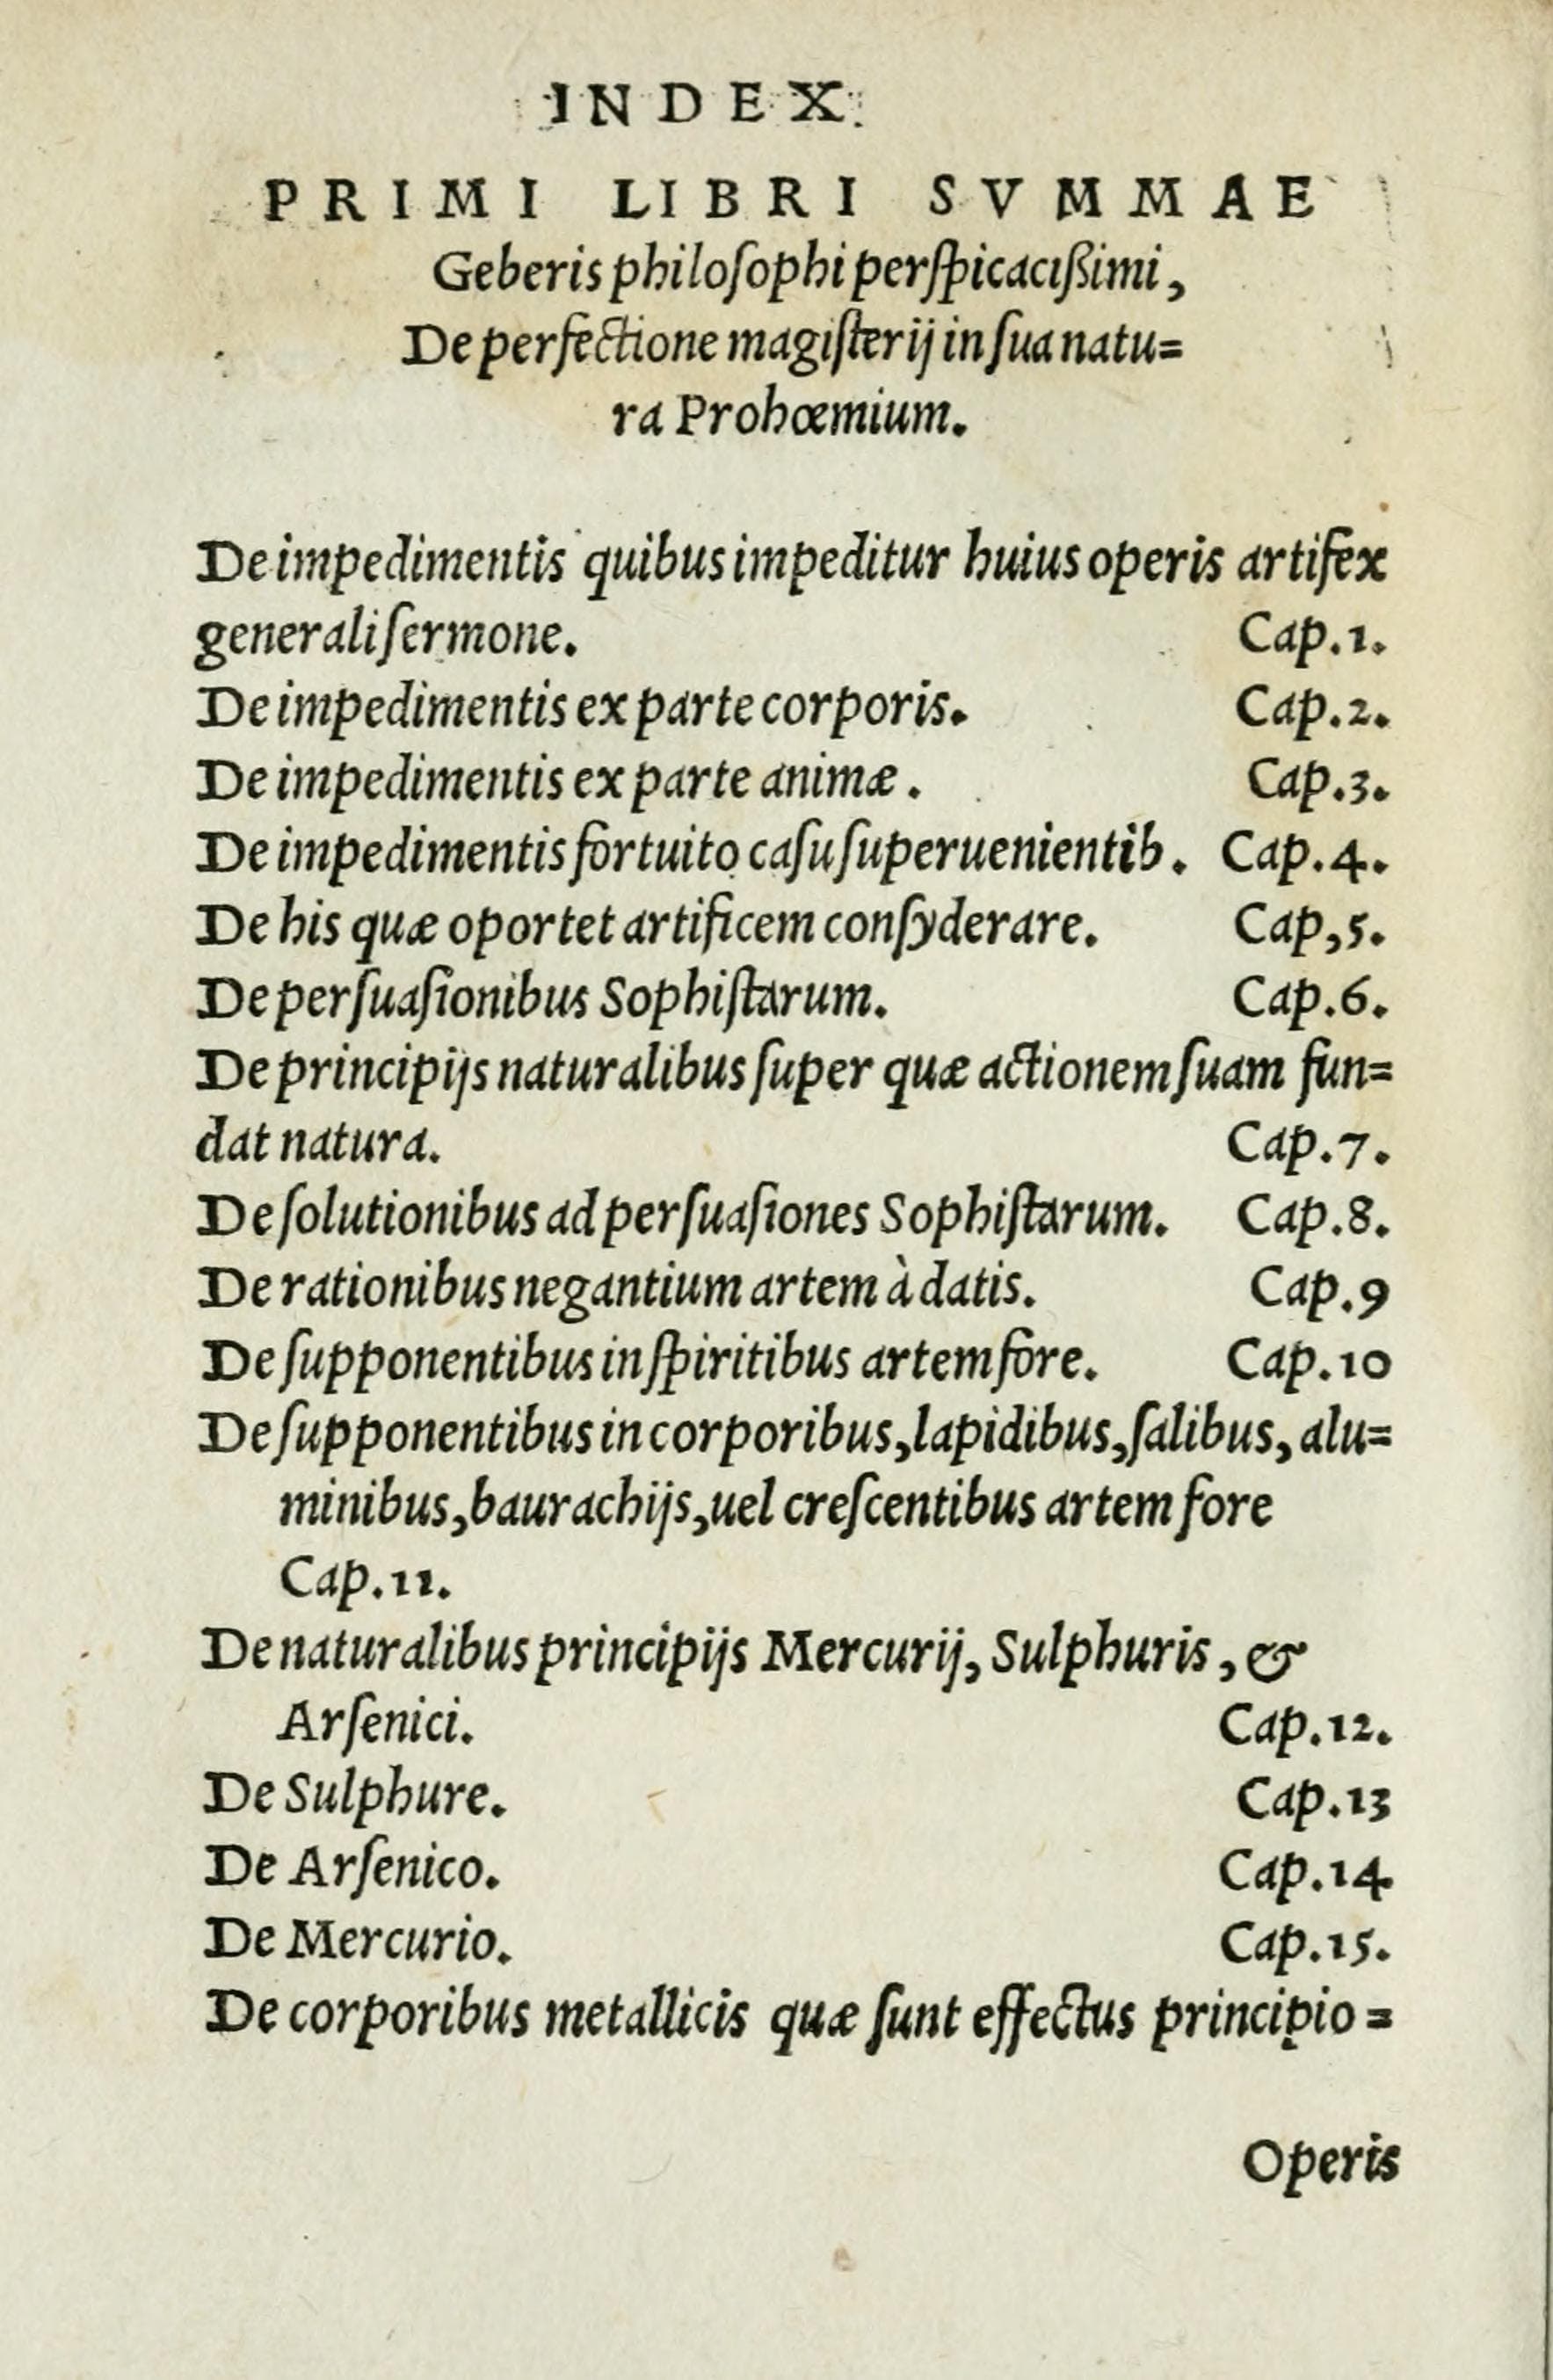 INDEX
PRIMI LIBRI SVMMAE
Geberis philoſophi perſpicacißimi,
De perfectione magiſterij in ſua natu=
ra Prohœmium.
De impedimentis quibus impeditur huius operis artifex
generali ſermone. Cap.1.
De impedimentis ex parte corporis. Cap.2.
De impedimentis ex parte animæ. Cap.3.
De impedimentis fortuito caſu ſuperuenientib. Cap.4.
De his quæ oportet artificem conſyderare. Cap,5.
De perſuaſionibus Sophiſtarum. Cap.6.
De principijs naturalibus ſuper quæ actionem ſuam fun=
dat natura. Cap.7.
De ſolutionibus ad perſuaſiones Sophiſtarum. Cap.8.
De rationibus negantium artem à datis. Cap.9
De ſupponentibus in ſpiritibus artem fore. Cap.10
De ſupponentibus in corporibus, lapidibus, ſalibus, alu=
minibus, baurachijs, uel creſcentibus artem fore
Cap.11.
De naturalibus principijs Mercurij, Sulphuris, &
Arſenici. Cap.12.
De Sulphure. Cap.13
De Arſenico. Cap.14
De Mercurio. Cap.15.
De corporibus metallicis quæ ſunt effectus principio=
Operis